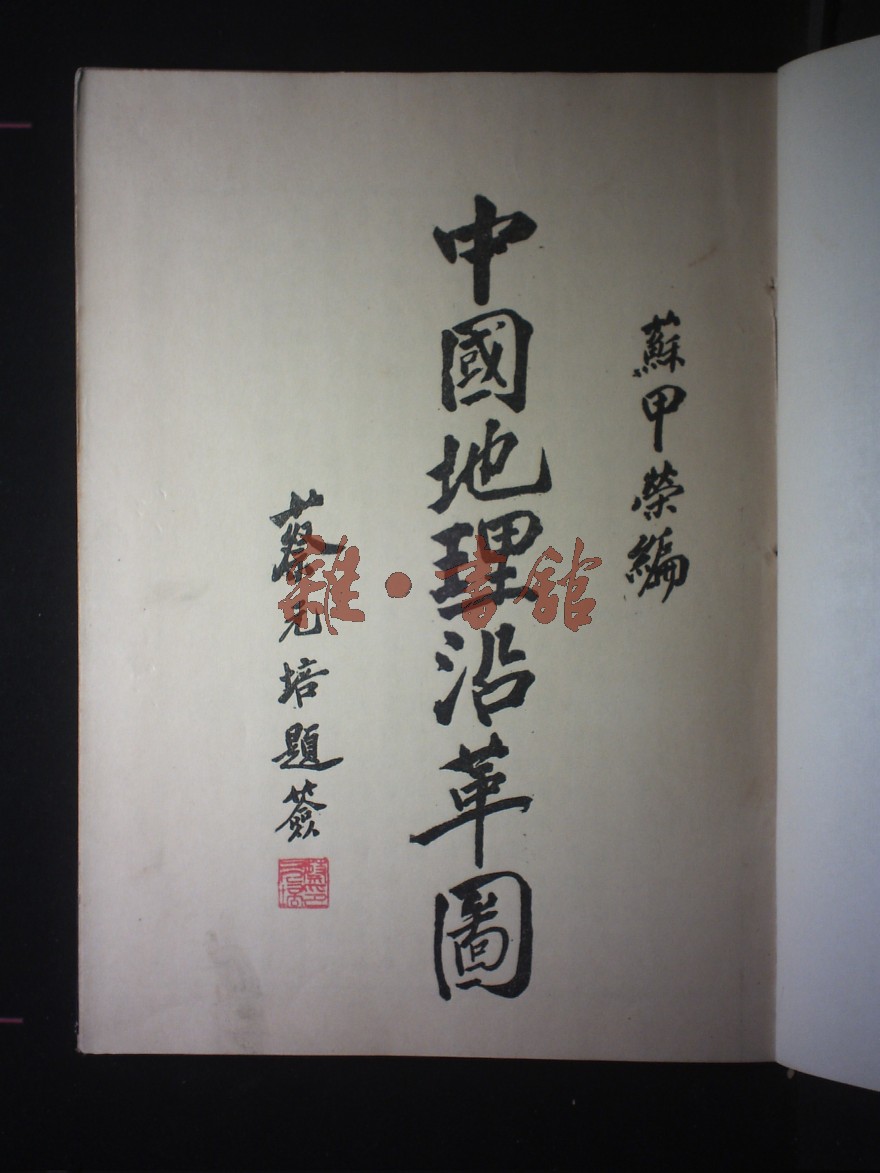 蘇甲榮編
中國地理沿革圖
蔡元培題簽
雜·書館